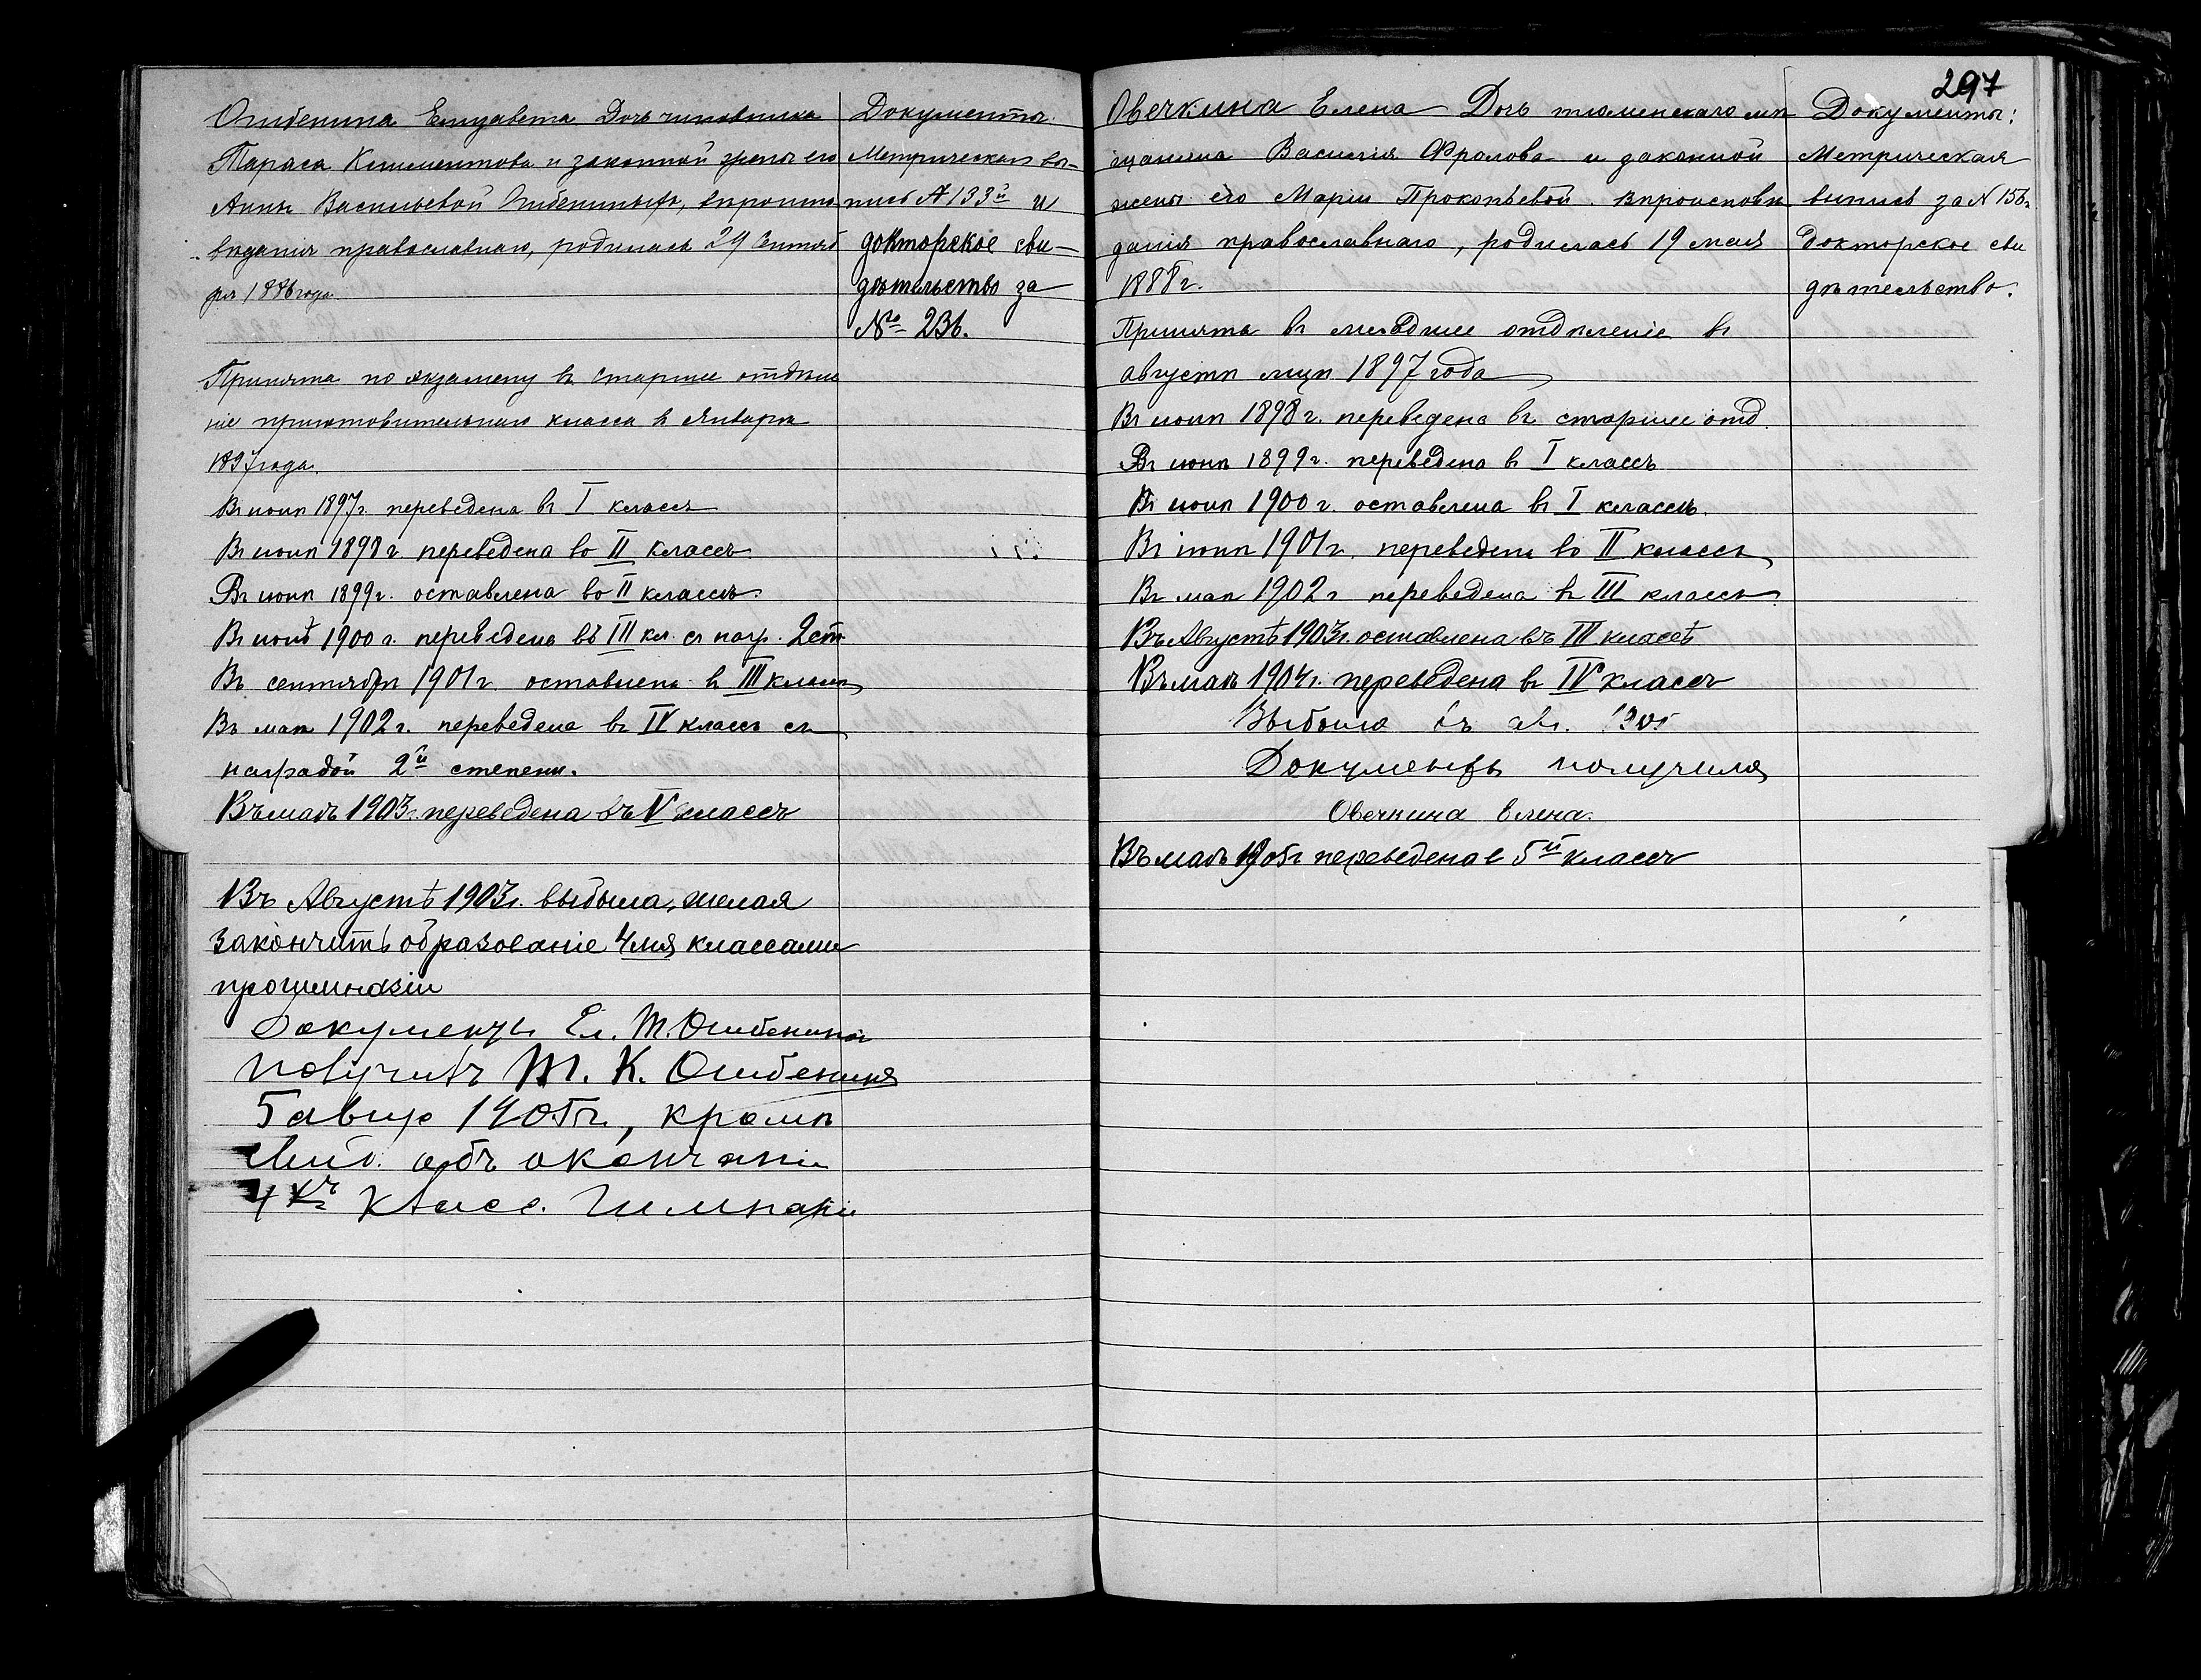 Ошбенина Елизавета Дочь чиновника
Тараса Климентова и законной жены его
Анны Васильевой Ошбениныхъ, вѣроиспо
вѣданія православнаго, родилась 24 Сентяб
ря 1886 года.
Документы.
Метрическая вы-
пись № 133й и
докторское сви-
дѣтельство за
№о 236.
Принята по экзамену въ старшее отдѣле
ніе приготовительнаго класса въ Январѣ
1897 года.
Въ іюнѣ 1897г. переведена въ I классъ
Въ іюнѣ 1898 г. переведена во II классъ
Въ іюнѣ 1899г. оставлена во II классѣ.
Въ іюнѣ 1900 г. переведена въ III кл. съ нагр. 2 ст.
Въ сентябрѣ 1901 г. оставлена въ III классѣ
Въ маѣ 1902 г. переведена въ IV классъ съ
наградой 2й степени.
Въ маѣ 1903 г. переведена въ V классъ
Въ Августѣ 1903 г. выбыла, желая
закончить образованіе 4мя классами
прогимназіи
Документы Ел. Т. Ошбениной
получилъ Т. К. Ошбенинъ
5 авгус 1905 г., кромѣ
свид. объ окончаніи
4хъ класс. Гимназіи
297
Овечкина Елена Дочь тюменскаго мѣ
щанина Василія Фролова и законной
жены его Маріи Прокопьевой. вѣроисповѣ
данія православнаго, родилась 19 мая
1888 г.
Документы:
Метрическая
выпись за № 156
Докторское сви
дѣтельство.
Принята въ младшее отдѣленіе въ
августѣ мцѣ 1897 года
Въ іюнѣ 1898 г. переведена въ старшее отд.
Въ іюнѣ 1899 г. переведена въ I классъ
Въ іюнѣ 1900 г. оставлена въ I классѣ.
Въ іюнѣ 1901 г. переведена во II классъ
Въ маѣ 1902 г. переведена въ III классъ
Въ Августѣ 1903 г. оставлена въ III классѣ
Въ маѣ 1904 г. переведена въ IV классъ
Выбыла въ авг. 1905
Документы получила
Овечкина Елена.
Въ маѣ 1905 г переведена в 5й классъ